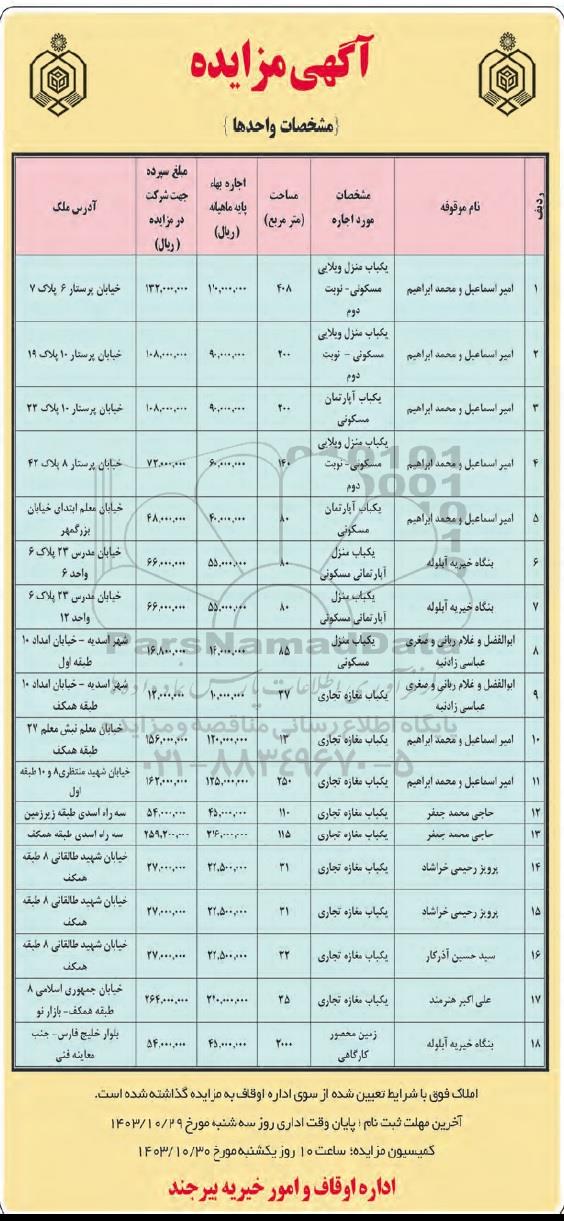 آگهی مزایده
{مشخصات واحدها}
ردیف | نام موقوفه | مشخصات مورد اجاره | مساحت (متر مربع) | اجاره بهاء پایه ماهیانه (ریال) | مبلغ سپرده جهت شرکت در مزایده (ریال) | آدرس ملک
۱ | امیر اسماعیل و محمد ابراهیم | یکباب منزل ویلایی مسکونی- نوبت دوم | ۴۰۸ | ۱۱۰,۰۰۰,۰۰۰ | ۱۳۲,۰۰۰,۰۰۰ | خیابان پرستار ۶ پلاک ۷
۲ | امیر اسماعیل و محمد ابراهیم | یکباب منزل ویلایی مسکونی - نوبت دوم | ۲۰۰ | ۹۰,۰۰۰,۰۰۰ | ۱۰۸,۰۰۰,۰۰۰ | خیابان پرستار ۱۰ پلاک ۱۹
۳ | امیر اسماعیل و محمد ابراهیم | یکباب آپارتمان مسکونی | ۲۰۰ | ۹۰,۰۰۰,۰۰۰ | ۱۰۸,۰۰۰,۰۰۰ | خیابان پرستار ۱۰ پلاک ۲۳
۴ | امیر اسماعیل و محمد ابراهیم | یکباب منزل ویلایی مسکونی- نوبت دوم | ۱۴۰ | ۶۰,۰۰۰,۰۰۰ | ۷۲,۰۰۰,۰۰۰ | خیابان پرستار ۸ پلاک ۴۲
۵ | امیر اسماعیل و محمد ابراهیم | یکباب آپارتمان مسکونی | ۸۰ | ۴۰,۰۰۰,۰۰۰ | ۴۸,۰۰۰,۰۰۰ | خیابان معلم ابتدای خیابان بزرگمهر
۶ | بنگاه خیریه آبلوله | یکباب منزل آپارتمانی مسکونی | ۸۰ | ۵۵,۰۰۰,۰۰۰ | ۶۶,۰۰۰,۰۰۰ | خیابان مدرس ۲۳ پلاک ۶ واحد ۶
۷ | بنگاه خیریه آبلوله | یکباب منزل آپارتمانی مسکونی | ۸۰ | ۵۵,۰۰۰,۰۰۰ | ۶۶,۰۰۰,۰۰۰ | خیابان مدرس ۲۳ پلاک ۶ واحد ۱۲
۸ | ابوالفضل و غلام ربانی و صغری عباسی زادنبه | یکباب منزل مسکونی | ۸۵ | ۱۴,۰۰۰,۰۰۰ | ۱۶,۸۰۰,۰۰۰ | شهر اسدیه - خیابان امداد ۱۰ طبقه اول
۹ | ابوالفضل و غلام ربانی و صغری عباسی زادنبه | یکباب مغازه تجاری | ۳۷ | ۱۰,۰۰۰,۰۰۰ | ۱۲,۰۰۰,۰۰۰ | شهر اسدیه - خیابان امداد ۱۰ طبقه همکف
۱۰ | امیر اسماعیل و محمد ابراهیم | یکباب مغازه تجاری | ۱۳ | ۱۲۰,۰۰۰,۰۰۰ | ۱۵۶,۰۰۰,۰۰۰ | خیابان معلم نبش معلم ۲۷ طبقه همکف
۱۱ | امیر اسماعیل و محمد ابراهیم | یکباب مغازه تجاری | ۲۵۰ | ۱۲۵,۰۰۰,۰۰۰ | ۱۶۲,۰۰۰,۰۰۰ | خیابان شهید منتظری ۸ و ۱۰ طبقه اول
۱۲ | حاجی محمد جعفر | یکباب مغازه تجاری | ۱۱۰ | ۴۵,۰۰۰,۰۰۰ | ۵۴,۰۰۰,۰۰۰ | سه راه اسدی طبقه زیرزمین
۱۳ | حاجی محمد جعفر | یکباب مغازه تجاری | ۱۱۵ | ۲۱۶,۰۰۰,۰۰۰ | ۲۵۹,۲۰۰,۰۰۰ | سه راه اسدی طبقه همکف
۱۴ | پرویز رحیمی خراشاد | یکباب مغازه تجاری | ۳۱ | ۲۲,۵۰۰,۰۰۰ | ۲۷,۰۰۰,۰۰۰ | خیابان شهید طالقانی ۸ طبقه همکف
۱۵ | پرویز رحیمی خراشاد | یکباب مغازه تجاری | ۳۱ | ۲۲,۵۰۰,۰۰۰ | ۲۷,۰۰۰,۰۰۰ | خیابان شهید طالقانی ۸ طبقه همکف
۱۶ | سید حسین آذرکار | یکباب مغازه تجاری | ۲۲ | ۲۲,۵۰۰,۰۰۰ | ۲۷,۰۰۰,۰۰۰ | خیابان شهید طالقانی ۸ طبقه همکف
۱۷ | علی اکبر هنرمند | یکباب مغازه تجاری | ۳۵ | ۲۲۰,۰۰۰,۰۰۰ | ۲۶۴,۰۰۰,۰۰۰ | خیابان جمهوری اسلامی ۸ طبقه همکف- بازار نو
۱۸ | بنگاه خیریه آبلوله | زمین محصور کارگاهی | ۲۰۰۰ | ۴۵,۰۰۰,۰۰۰ | ۵۴,۰۰۰,۰۰۰ | بلوار خلیج فارس- جنب معاینه فنی
ParsNamadData
پایگاه اطلاع رسانی مناقصه و مزایده
۰۲۱-۸۸۳۴۹۶۷۰-۵
املاک فوق با شرایط تعیین شده از سوی اداره اوقاف به مزایده گذاشته شده است.
آخرین مهلت ثبت نام : پایان وقت اداری روز سه شنبه مورخ ۱۴۰۳/۱۰/۲۹
کمیسیون مزایده: ساعت ۱۰ روز یکشنبه مورخ ۱۴۰۳/۱۰/۳۰
اداره اوقاف و امور خیریه بیرجند